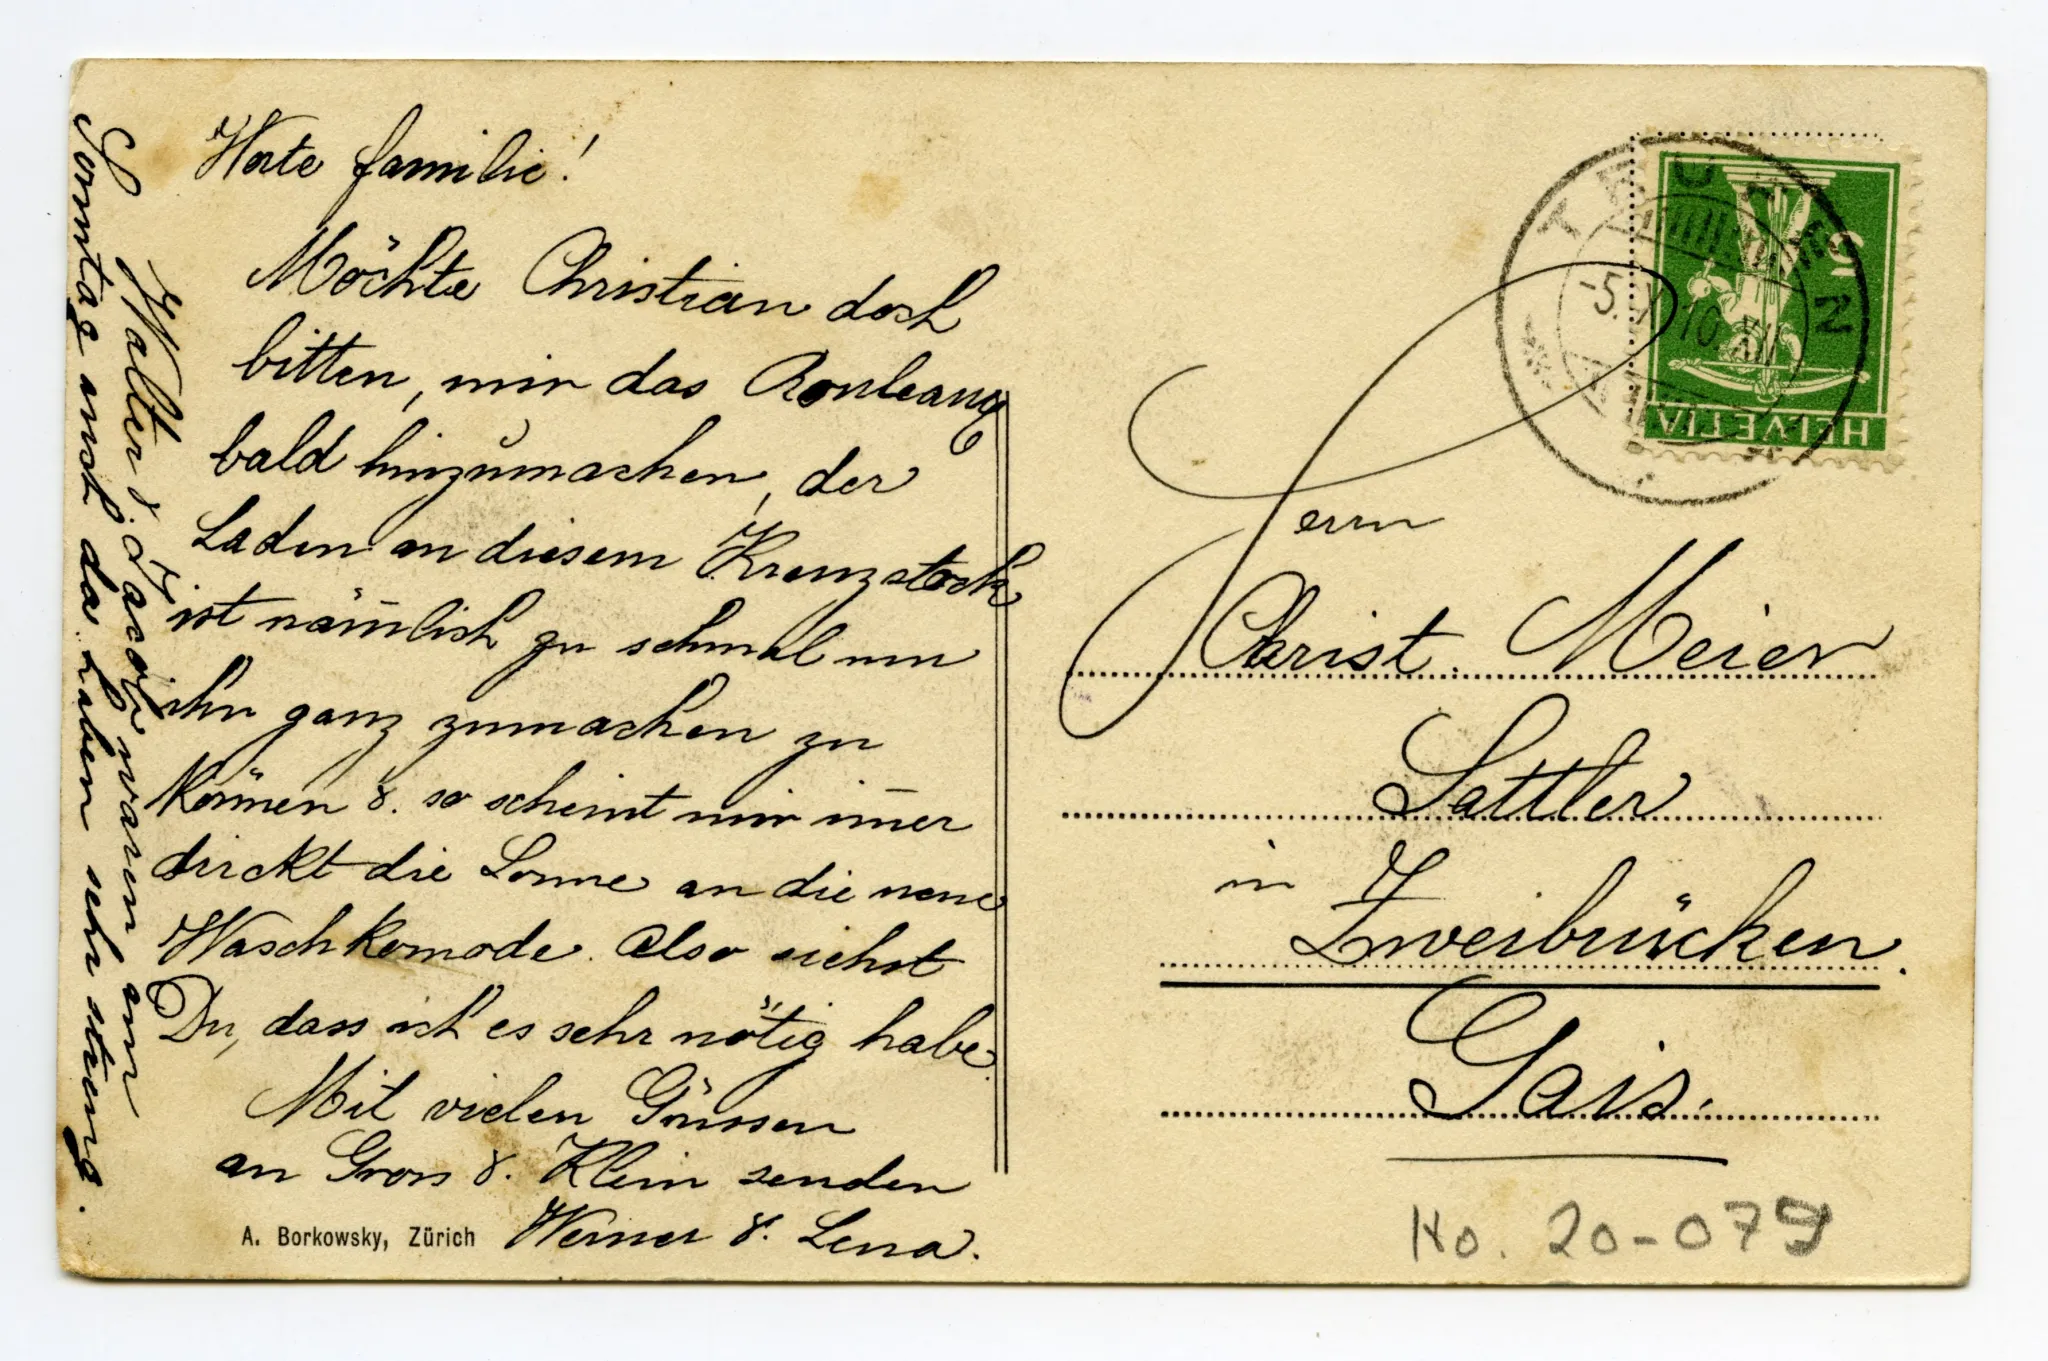 Werte Familie!
Möchte Christian doch
bitten, mir das Rouleaux
bald hinzumachen, der
Laden an diesem Kreuzstock
ist näm̅lich zu schmal um
ihn ganz zumachen zu
können &. so scheint mir im̅er
direkt die Sonne an die neue
Waschkomode. Also siehst
Du, dass ich es sehr nötig habe.
Mit vielen Grüssen
an Gross &. Klein senden
Werner &. Lena.
Walter &. Jacob waren am
Sonntag auch da. haben sehr streng.
A. Borkowsky, Zürich
HELVETIA
5
TRUNS
-5. X 10 XII
Herrn
Christ. Meier
Sattler
in Zweibrücken.
Gais.
Ho. 20-079